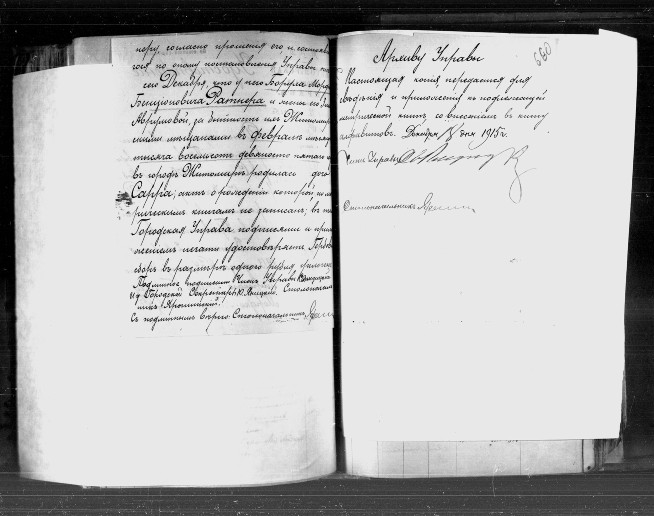 пору, согласно прошения его и состояв-
гося по оному постановленія Управы
сего Декабря, что у него Боруха Мордк
Бенціоновича Ратнера и жены его
Аврумовой, за бытность их Житомир
скими мѣщанами въ февралѣ мѣсяцѣ
тысяча восемьсотъ девяносто пятаго
въ городѣ Житомирѣ родилась дочь
Сарра; актъ о рожденіи которой по мет
рическимъ книгамъ не записан; въ
Городская Управа подписями и прило
женіемъ печати удостовѣряетъ. Гербов
сборъ въ размѣрѣ одного рубля уплачен
Подлинное подписали: Членъ Управы
и д. Городской Секретарь Ю. Столоначаль
никъ:
Съ подлиннымъ вѣрно: Столоначальникъ
660
Архиву Управы
Настоящая копія передается для
свѣдѣнія и пріобщенія къ подлежащей
метрической книгѣ, со внесеніем въ книгу
алфавитовъ. Декабря дня 1915 г.
Членъ Управы
Столоначальникъ